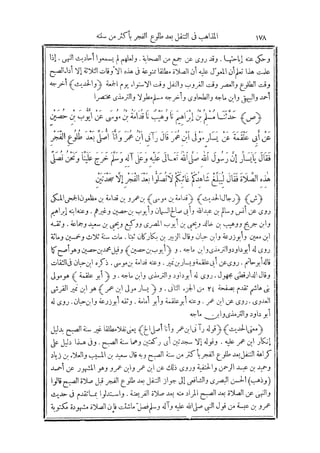 ١٧٨ المذاهب فى التنفل بعد طلوع الفجر بأكثر من سنته
وحكى عنه إباحتها. وقد روى عن جمع من الصحابة. ولعلهم لم يسمعوا أحاديث النهى. إذا
علمت هذا تعلم أن المعول عليه أن الصلاة مطلقا ممنوعة فى هذه الأوقات الثلاثة إلا أداء الصبح
وقت الطلوع والعصر وقت الغروب والنفل وقت الاستواء يوم الجمعة ﴿والحديث﴾ أخرجه
أحمد والبيهق وابن ماجه والطحاوى وأخرجه مسلم مطولا والترمذى مختصرا
﴿ص﴾ حَدَّثَنَا مُسْلِمُ بْنُ إِبْرَاهِيمَ نَا وُهَيْبٌ نَا قُدَامَةُ بْنُ مُوسَى عَنْ أَيُّوبَ بْنِ حُصَيْنٍ
عَنْ أَبِى عَلْقَمَةَ عَنْ يَسَارٍ مَوْلَى ابْنِ عُمَرَ قَالَ رَآنِى ابْنُ عُمَرَ وَأَنَا أُصَلِّى بَعْدَ طُلُوعِ الْفَجْرِ
فَقَالَ يَايَسَارُ إِنَّ رَسُولَ اللهِ صَلَّى اللهُ تَعَالَى عَلَيْهِ وَعَلَى آلِهِ وَسَلَّمَ خَرَجَ عَلَيْنَا وَنَحْنُ نُصَلِّى
هَذِهِ الصَّلَاةَ فَقَالَ لِيُبَلِّغْ شَاهِدُكُمْ غَائِبَكُمْ لَاتُصَلُّوا بَعْدَ الْفَجْرِ إِلَّا سَجْدَتَيْنِ
﴿ش﴾ ﴿رجال الحديث﴾ ﴿قدامة بن موسى﴾ بن عمر بن قدامة بن مظعون الجمحى المكى
روى عن أنس وسالم بن عبدالله وأبى صالح السمان وأيوب بن حصين وغيرهم. وعنه إبراهيم
وابن جريج ووهيب بن خالد ويحيى بن أيوب المصرى ووكيع ويحيى بن سعيد وجماعة. وثقه
ابن معين وأبو زرعة وابن حبان وقال الزبير بن بكار كان ثبتا. مات سنة ثلاث وخمسين ومائة
روى له أبو داود والترمذى وابن ماجه. و﴿أيوب بن حصين﴾ وقيل محمد بن حصين وهو أصح كما
قاله أبو حاتم. روى عن أبى علقمة ويسار بن نمير. وعنه قدامة بن موسى. ذكره ابن حبان فى الثقات
وقال الدارقطنى مجهول. روى له أبو داود والترمذى وابن ماجه. و﴿أبو علقمة﴾ هو مولى
بنى هاشم تقدم بصفحة من الجزء الثانى. و﴿يسار مولى ابن عمر﴾ هو ابن نمير القرشى
العدوى. روى عن ابن عمر. وعنه أبو علقمة وأبو أمامة. وثقه أبو زرعة وابن حبان. روى له
أبو داود والترمذى وابن ماجه
﴿معنى الحديث﴾ ﴿قوله رآنى ابن عمر وأنا أصلى الخ﴾ يعنى نفلا مطلقا غير سنة الصبح بدليل
إنكار ابن عمر عليه. وقوله إلا سجدتين أى ركعتين وهما سنة الصبح. وفى هذا دليل على
كراهة التنفل بعد طلوع الفجر بأكثر من سنة الصبح وبه قال سعيد بن المسيب والعلاء بن زياد
وحميد بن عبد الرحمن والحنفية وروى ذلك عن ابن عمر وابن عمرو وهو المشهور عن أحمد
﴿وذهب﴾ الحسن البصرى والشافعى إلى جواز التنفل بعد طلوع الفجر قبل صلاة الصبح قالوا
والنهى عن الصلاة بعد الصبح المراد منه بعد صلاة الفريضة. واستدلوا بما تقدم فى حديث
عمرو بن عبسة من قول النبى صلى الله عليه وآله وسلم فصل ماشئت فإن الصلاة مشهودة مكتوبة